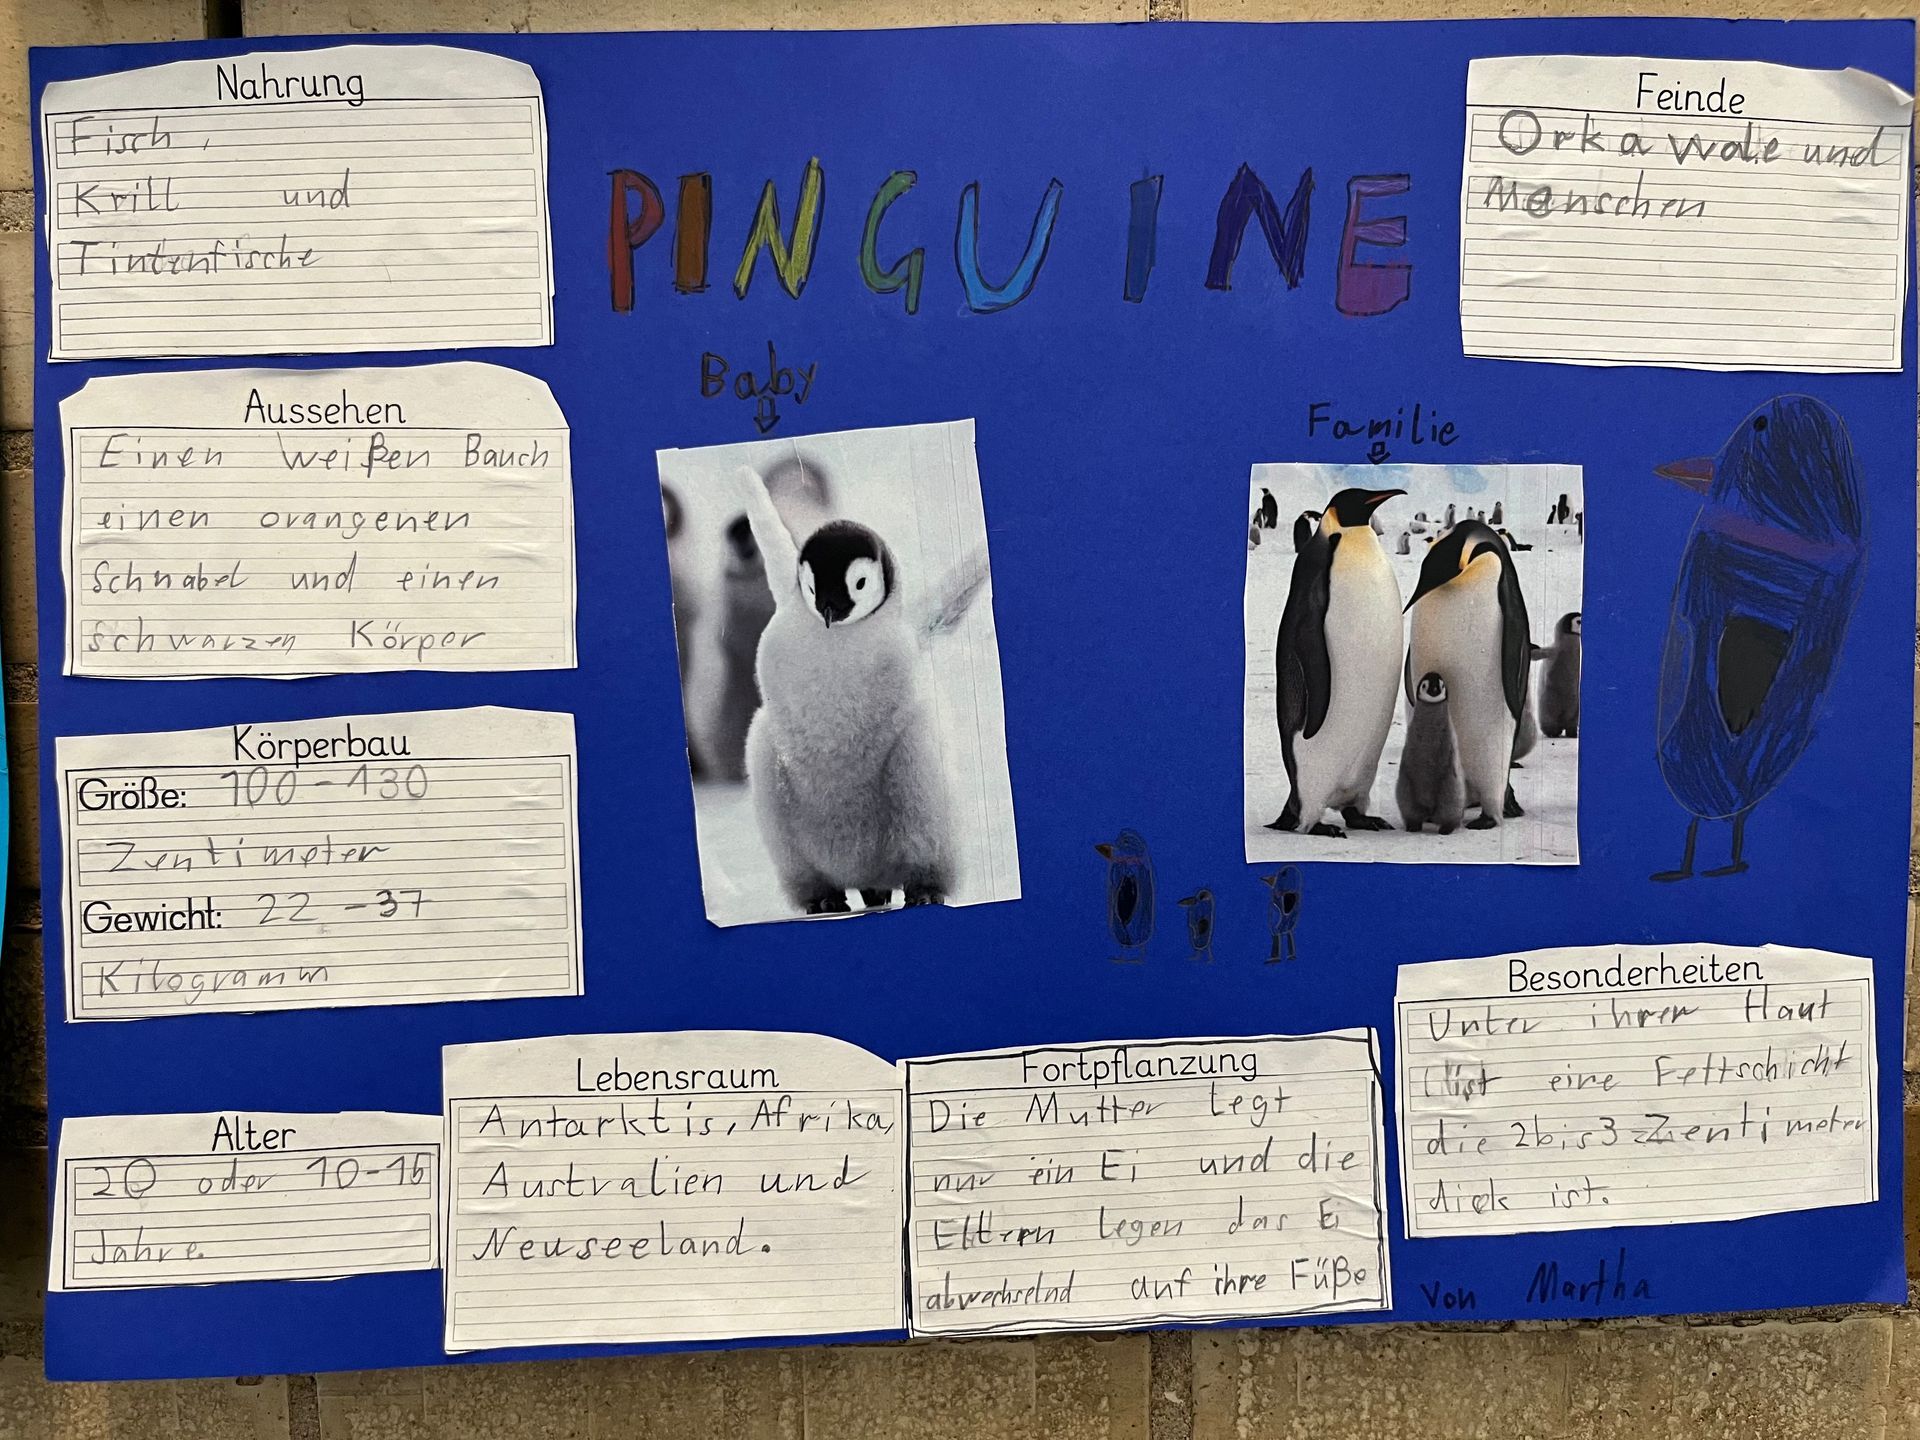 PINGUINE
Nahrung
Fisch,
Krill und
Tintenfische
Feinde
Orkawale und
Menschen
Baby
Familie
Aussehen
Einen weißen Bauch
einen orangenen
Schnabel und einen
schwarzen Körper
Körperbau
Größe: 100-130
Zentimeter
Gewicht: 22-37
Kilogramm
Alter
20 oder 10-15
Jahre.
Lebensraum
Antarktis, Afrika,
Australien und
Neuseeland.
Fortpflanzung
Die Mutter legt
nur ein Ei und die
Eltern legen das Ei
abwechselnd auf ihre Füße
Besonderheiten
Unter ihrer Haut
ist eine Fettschicht
die 2bis3 Zentimeter
dick ist.
von Martha